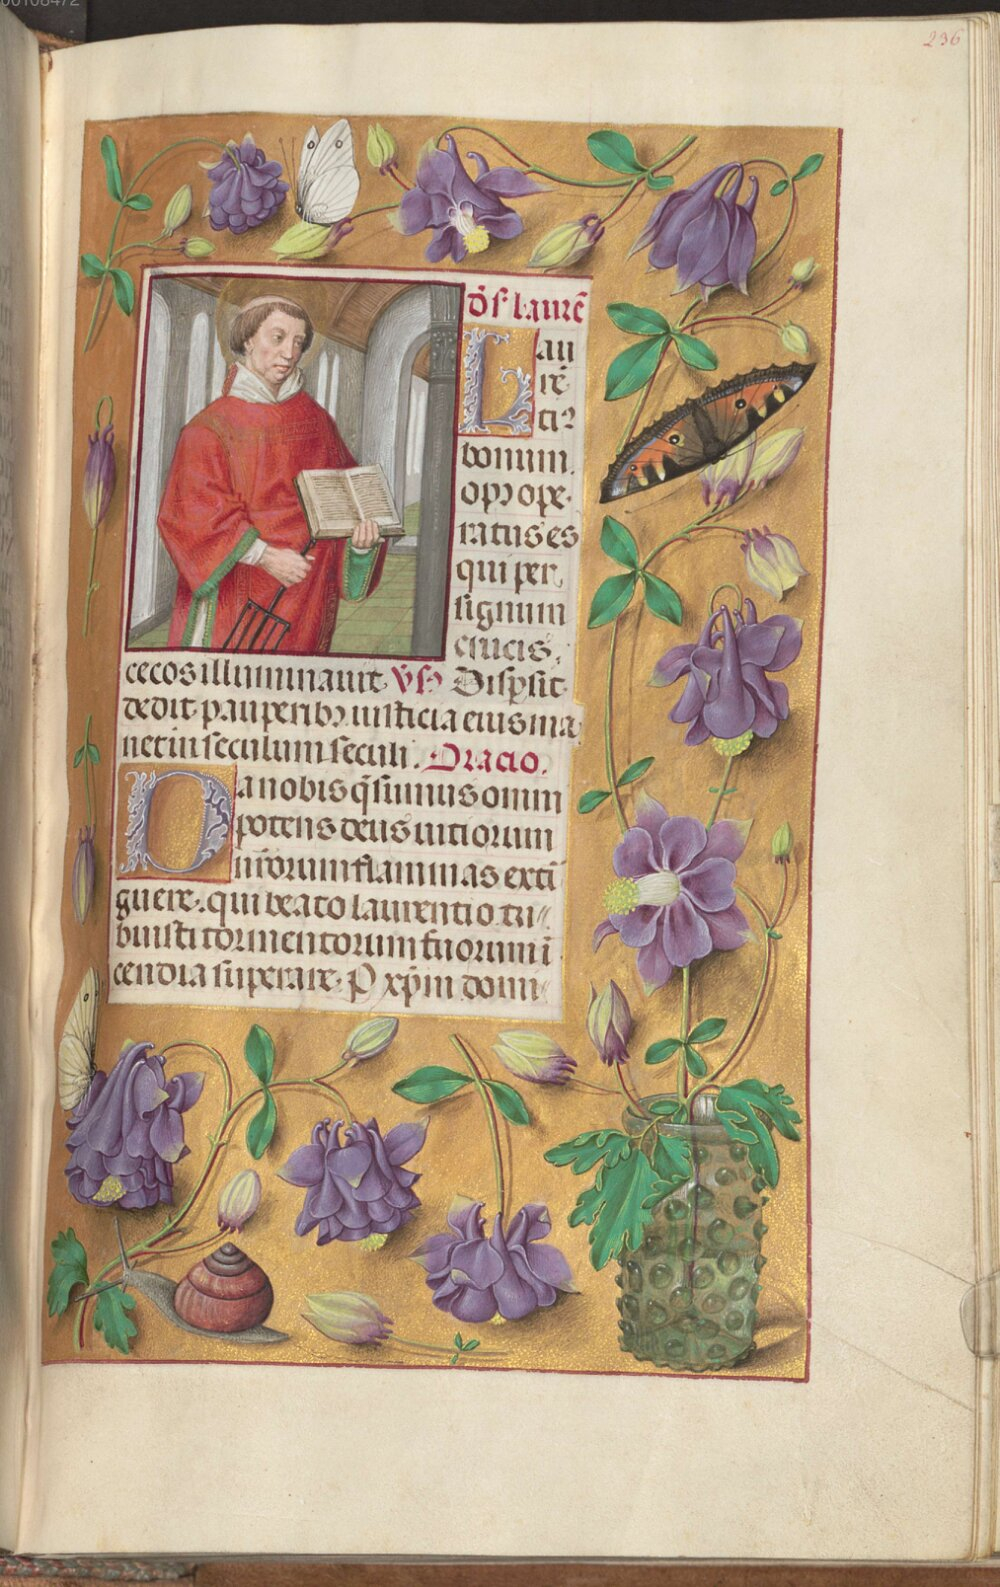 00108472
236
D̄s laurē
Lau
rē
ti9
bonum.
opꝰ ope
ratus es
qui per
signum
crucis.
cecos illuminauit. Vs. Dispsit
dedit pauperibꝰ iusticia eius ma
net in seculum seculi. Oracio.
Da nobis qs̄umus omni
potens deus uiciorum
nr̄orum flammas exti
guere. qui beato laurentio tri
buisti tormentorum suorum ī
cendia superare. P xp̄m domi